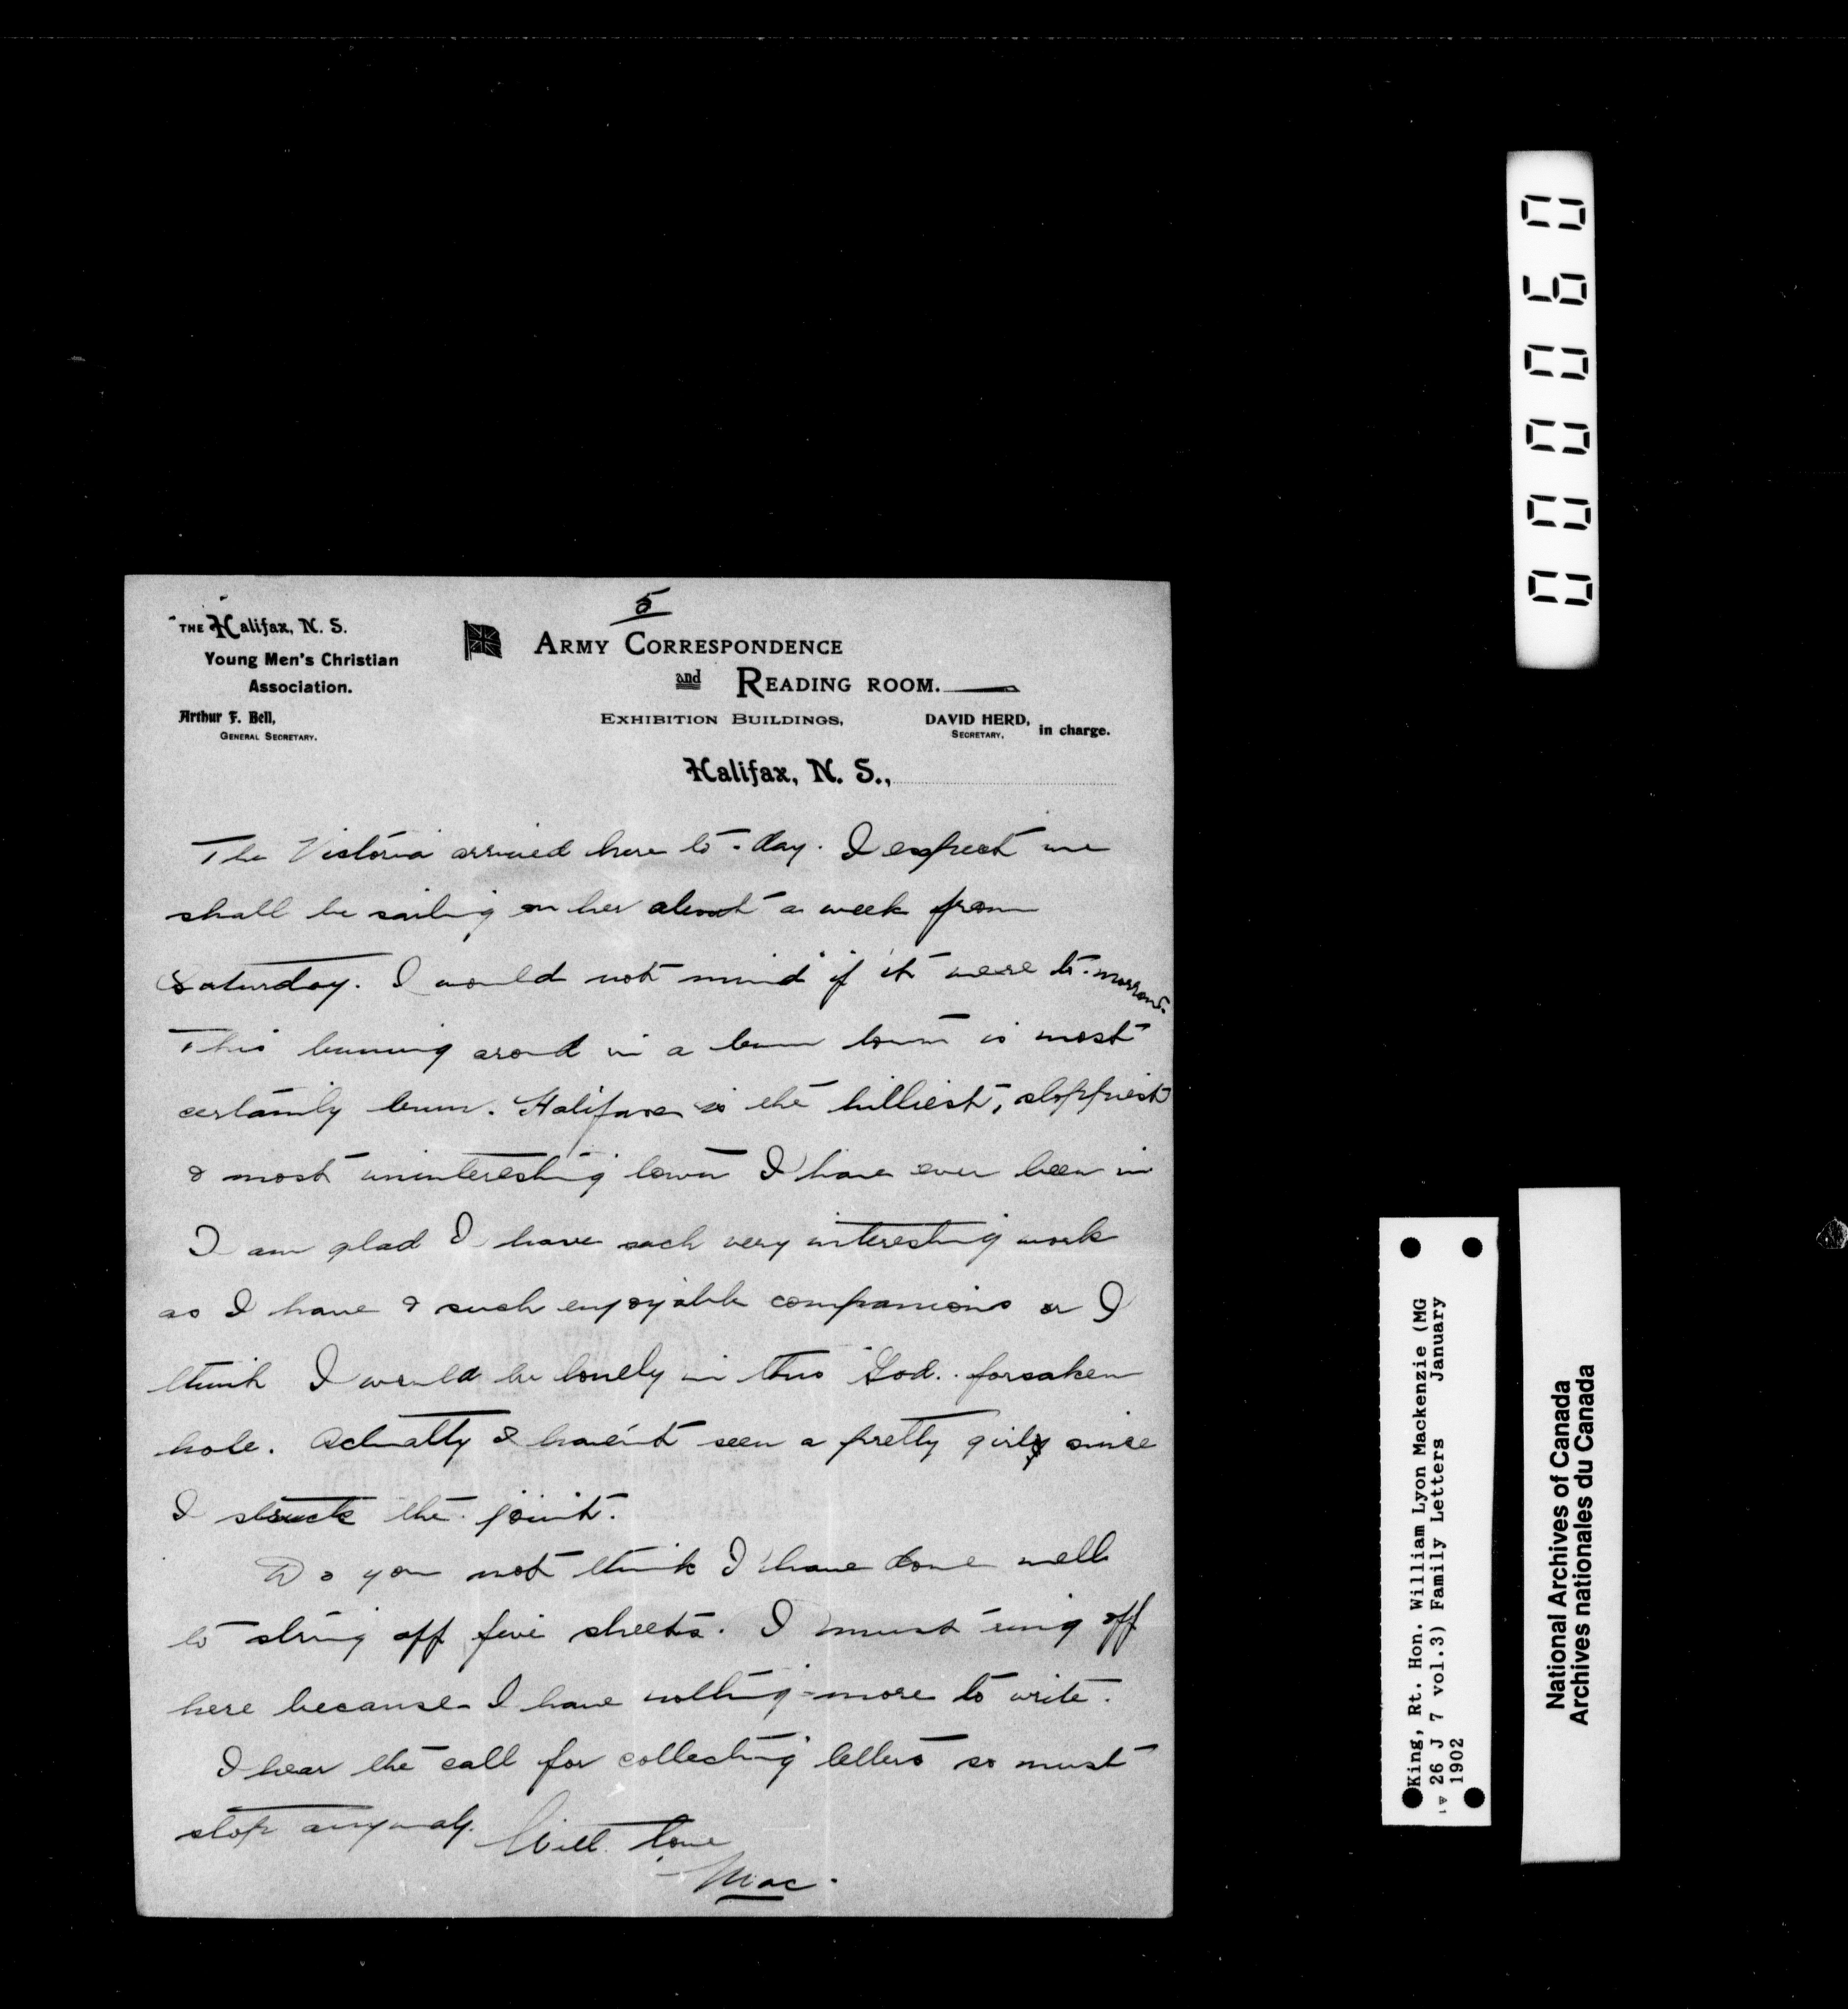 5
THE Halifax, N. S.
Young Men's Christian
Association.
Arthur F. Bell,
GENERAL SECRETARY.
ARMY CORRESPONDENCE
and READING ROOM.
EXHIBITION BUILDINGS,
DAVID HERD,
SECRETARY, in charge.
Halifax, N. S.,
The Victoria arrived here to-day. I expect we
shall be sailing on her about a week from
Saturday. I would not mind if it were to-morrow.
This bumming around in a bum town is most
certainly bum. Halifax is the hilliest, sloppiest
& most uninteresting town I have ever been in
I am glad I have such very interesting work
as I have & such enjoyable companions or I
think I would be lonely in this God-forsaken
hole. Actually I haven't seen a pretty girl since
I struck the joint.
Do you not think I have done well
to string off five sheets. I must ring off
here because I have nothing more to write.
I hear the call for collecting letters so must
stop anyway. With love
Mac.
000060
King, Rt. Hon. William Lyon Mackenzie (MG
26 J 7 vol.3) Family Letters January
1902
National Archives of Canada
Archives nationales du Canada